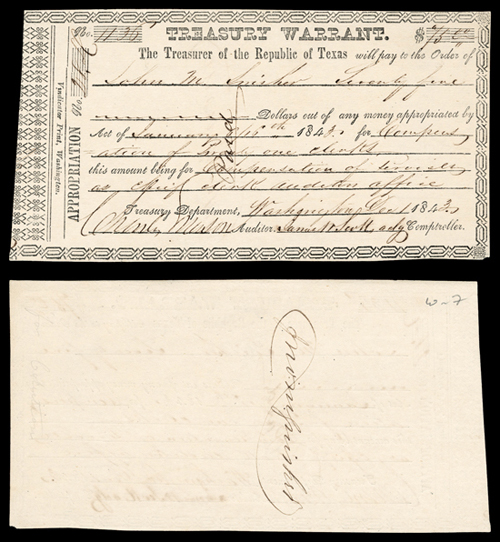 No. 1135 TREASURY WARRANT. $75.00
The Treasurer of the Republic of Texas will pay to the Order of
John M Swisher Seventy five
Dollars out of any money appropriated by
Act of January 1843. for Compens
ation of clerks
this amount being for Compensation of himself
as chief clerk auditors office
Treasury Department, Washington Dec 1843.
Charles Mason Auditor. James W Scott actg Comptroller.
Paid
APPROPRIATION No.
Vindicator Print, Washington.
W-7